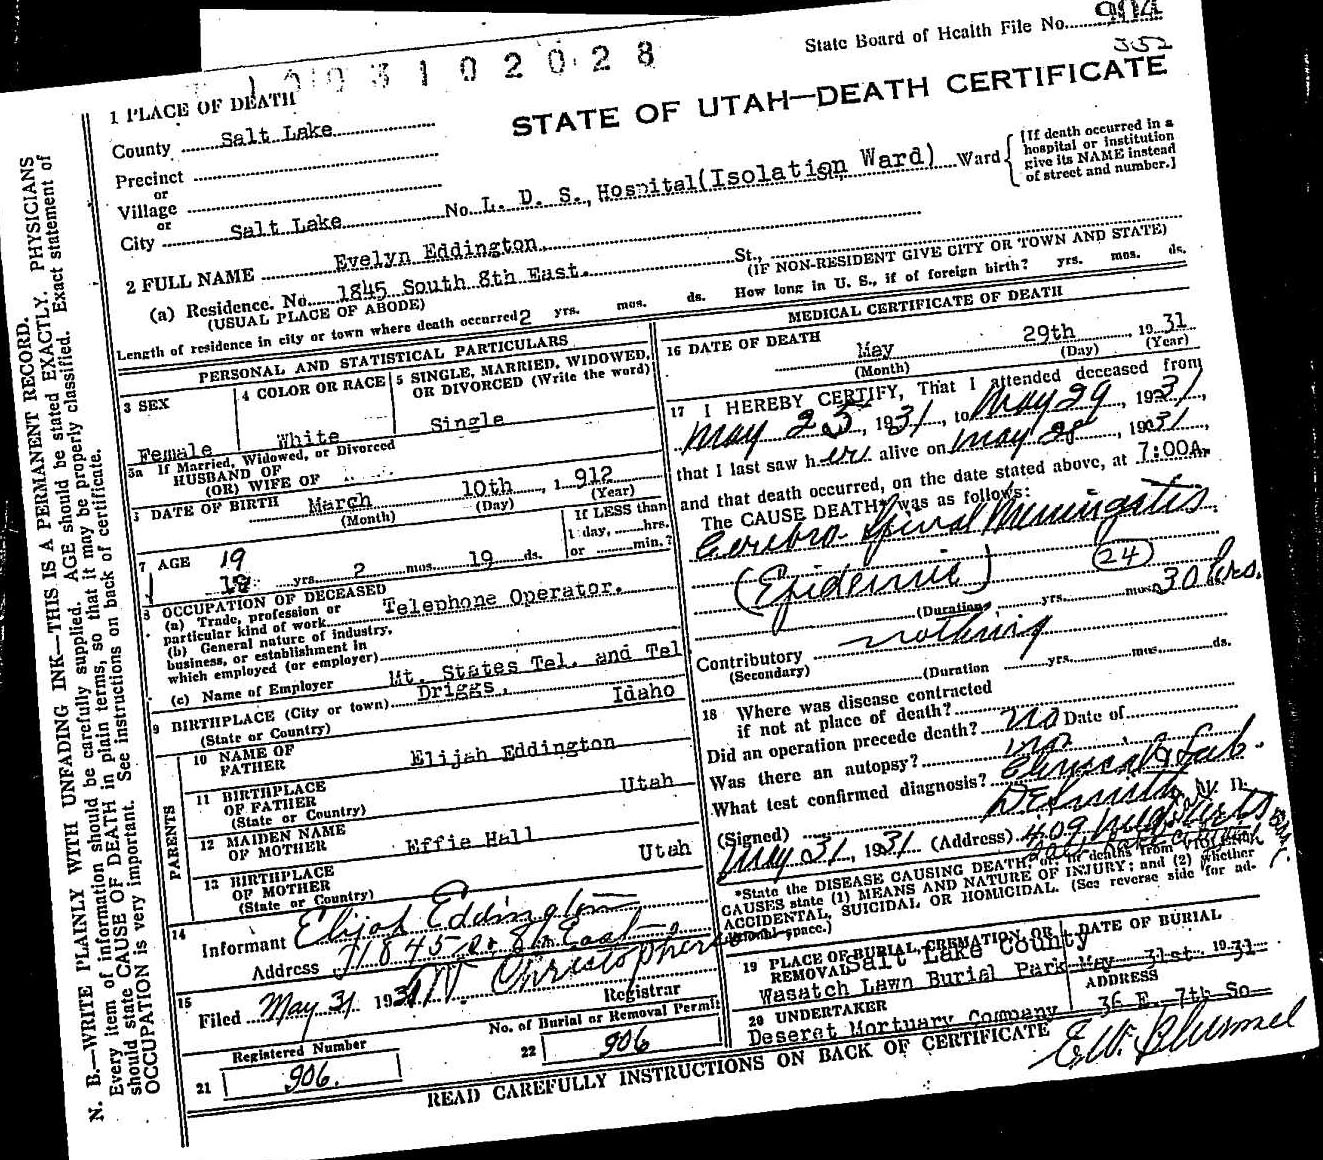 State Board of Health File No. 904
352
1 0 0 3 1 0 2 0 2 8
STATE OF UTAH—DEATH CERTIFICATE
1 PLACE OF DEATH
County Salt Lake
Precinct
or
Village
or
City Salt Lake No. L. D. S., Hospital (Isolation Ward) Ward
[If death occurred in a hospital or institution give its NAME instead of street and number.]
2 FULL NAME Evelyn Eddington
(a) Residence. No. 1845 South 8th East. St.,
(USUAL PLACE OF ABODE)
(IF NON-RESIDENT GIVE CITY OR TOWN AND STATE)
Length of residence in city or town where death occurred 2 yrs. mos. ds. How long in U. S., if of foreign birth? yrs. mos. ds.
PERSONAL AND STATISTICAL PARTICULARS
3 SEX
Female
4 COLOR OR RACE
White
5 SINGLE, MARRIED, WIDOWED, OR DIVORCED (Write the word)
Single
5a If Married, Widowed, or Divorced
HUSBAND OF
(OR) WIFE OF
DATE OF BIRTH March 10th, 1912
(Month) (Day) (Year)
7 AGE 19
18 yrs. 2 mos. 19 ds.
If LESS than
1 day, hrs.
or min.?
8 OCCUPATION OF DECEASED
(a) Trade, profession or
particular kind of work Telephone Operator.
(b) General nature of industry,
business, or establishment in
which employed (or employer)
(c) Name of Employer Mt. States Tel. and Tel
9 BIRTHPLACE (City or town) Driggs, Idaho
(State or Country)
PARENTS
10 NAME OF
FATHER Elijah Eddington
11 BIRTHPLACE
OF FATHER Utah
(State or Country)
12 MAIDEN NAME
OF MOTHER Effie Hall
13 BIRTHPLACE
OF MOTHER Utah
(State or Country)
14
Informant Elijah Eddington
Address 1845 So 8th East
15
Filed May 31 1931 Christopherson
Registrar
No. of Burial or Removal Permit
22 906
Registered Number
21 906.
MEDICAL CERTIFICATE OF DEATH
16 DATE OF DEATH
May 29th, 1931
(Month) (Day) (Year)
17 I HEREBY CERTIFY, That I attended deceased from
May 25, 1931, to May 29, 1931,
that I last saw her alive on May 28, 1931,
and that death occurred, on the date stated above, at 7:00A.
The CAUSE DEATH* was as follows:
Cerebro-Spinal Meningitis
(Epidemic) 24
(Duration, yrs. mos. 30 hrs.
Contributory nothing
(Secondary)
(Duration yrs. mos. ds.
18 Where was disease contracted
if not at place of death?
Did an operation precede death? no Date of
Was there an autopsy? no
What test confirmed diagnosis? Clinical & Lab.
(Signed) D E Smith
May 31, 1931 (Address) 409
*State the DISEASE CAUSING DEATH, or, in deaths from
CAUSES state (1) MEANS AND NATURE OF INJURY; and (2) whether
ACCIDENTAL, SUICIDAL OR HOMICIDAL. (See reverse side for ad-
ditional space.)
19 PLACE OF BURIAL, CREMATION, OR
REMOVAL Salt Lake County
Wasatch Lawn Burial Park
DATE OF BURIAL
May 31st 1931
20 UNDERTAKER
Deseret Mortuary Company
ADDRESS
36 E. 7th So
READ CAREFULLY INSTRUCTIONS ON BACK OF CERTIFICATE
N. B.—WRITE PLAINLY WITH UNFADING INK—THIS IS A PERMANENT RECORD.
Every item of information should be carefully supplied. AGE should be stated EXACTLY. PHYSICIANS
should state CAUSE OF DEATH in plain terms, so that it may be properly classified. Exact statement of
OCCUPATION is very important. See instructions on back of certificate.